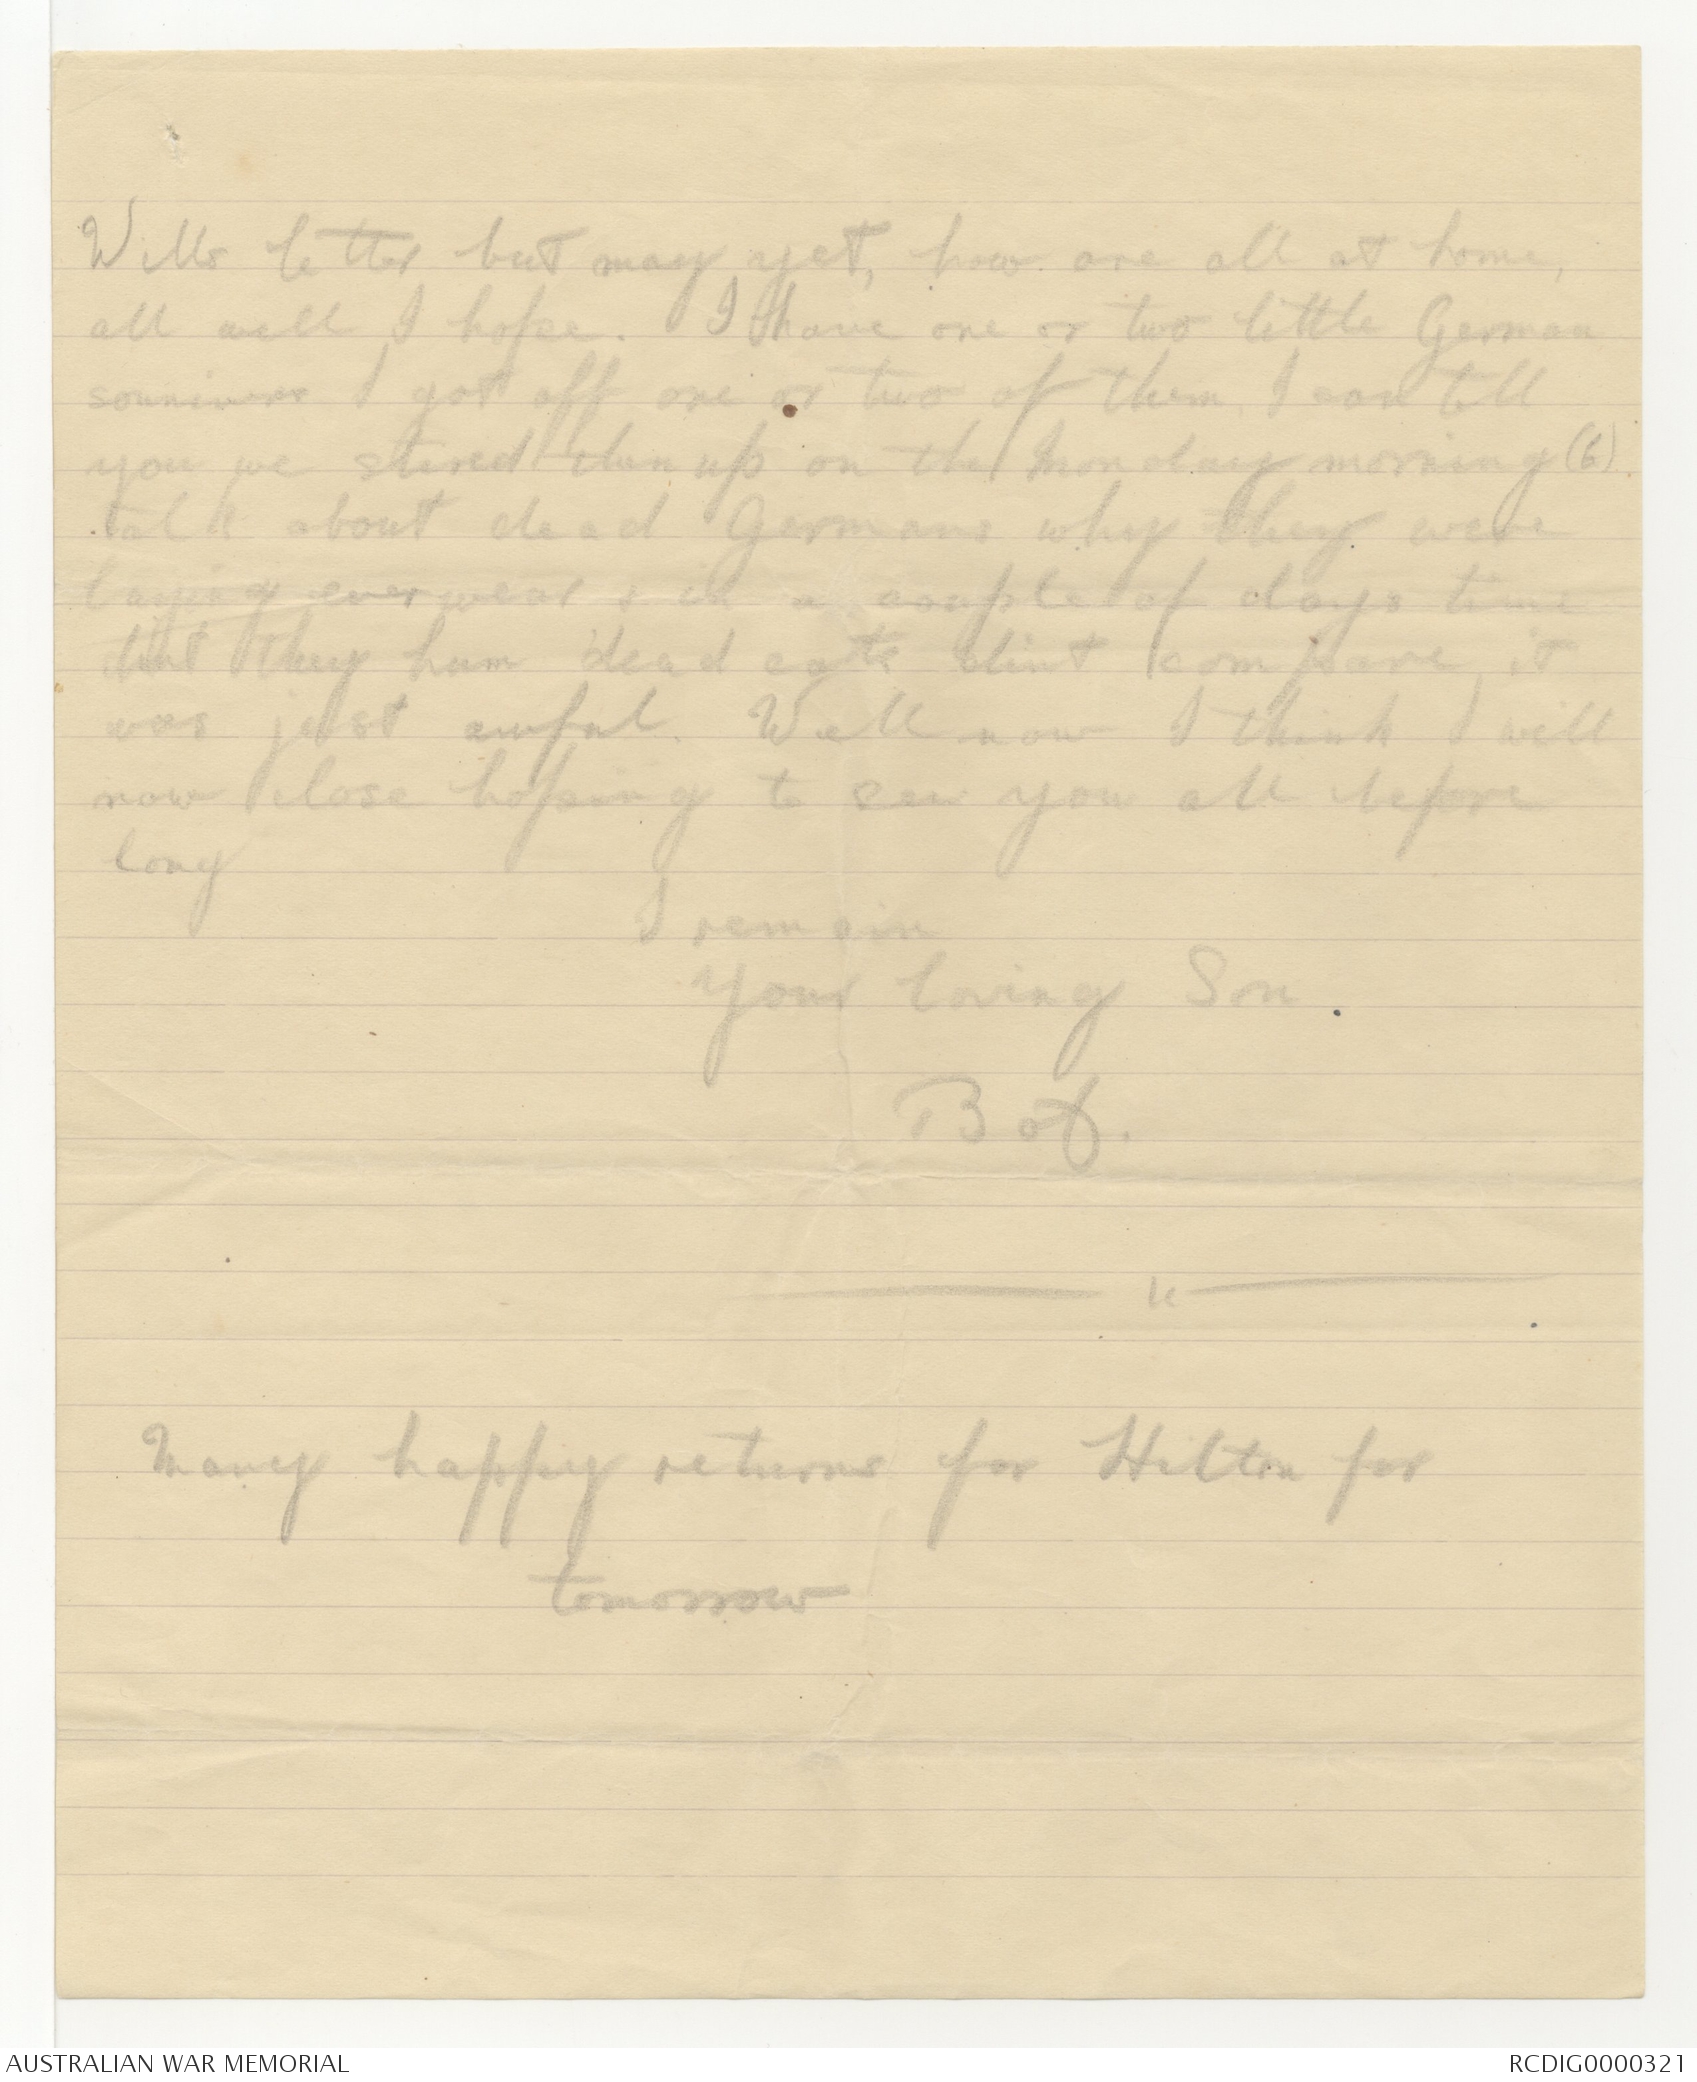 Wills letter but may yet, how are all at home,
all well I hope. I have one or two little German
souviners I got off one or two of them, I can tell
you we stired them up on the Monday morning (6)
talk about dead Germans why they were
laying everywear & in a couple of days time
dint they hum dead cats dint compare, it
was just awful. Well now I think I will
now close hopeing to see you all before
long
I remain
Your loving Son.
Bob.
Many happy returns for Hilton for
tomorrow
AUSTRALIAN WAR MEMORIAL
RCDIG0000321